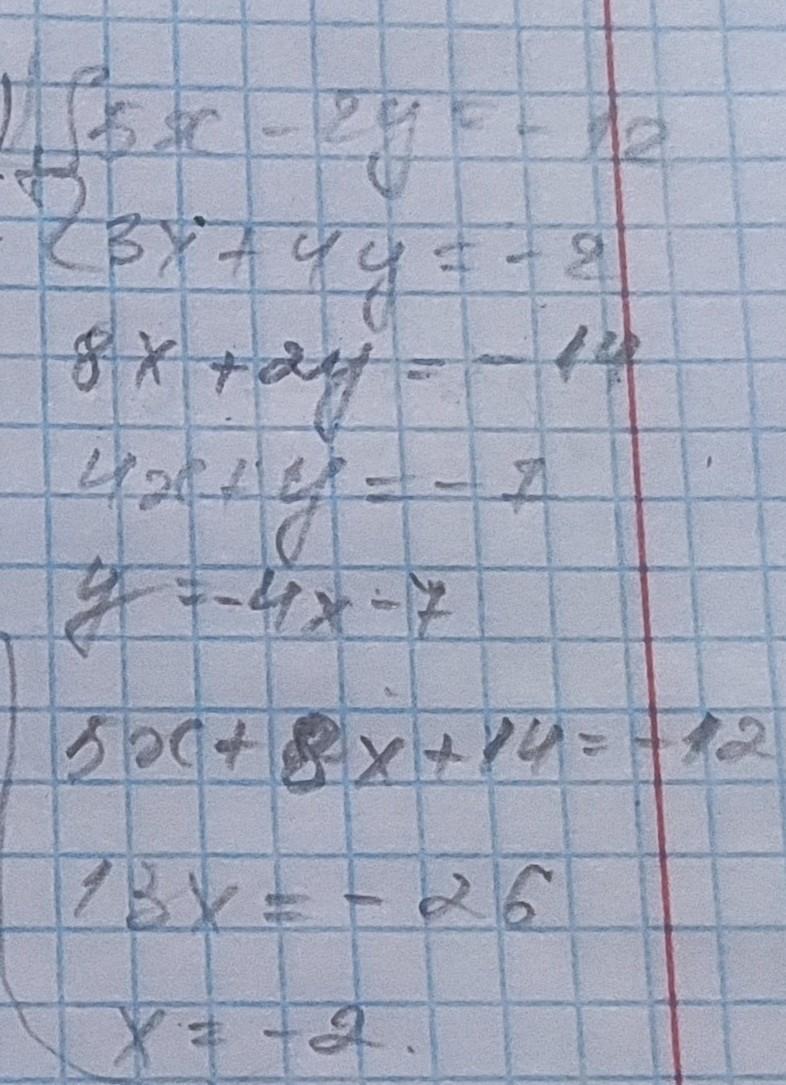 5x - 2y = - 12
3x + 4y = - 2
8x + 2y = - 14
4x + y = - 7
y = -4x - 7
5x + 8x + 14 = -12
13x = - 26
x = -2.